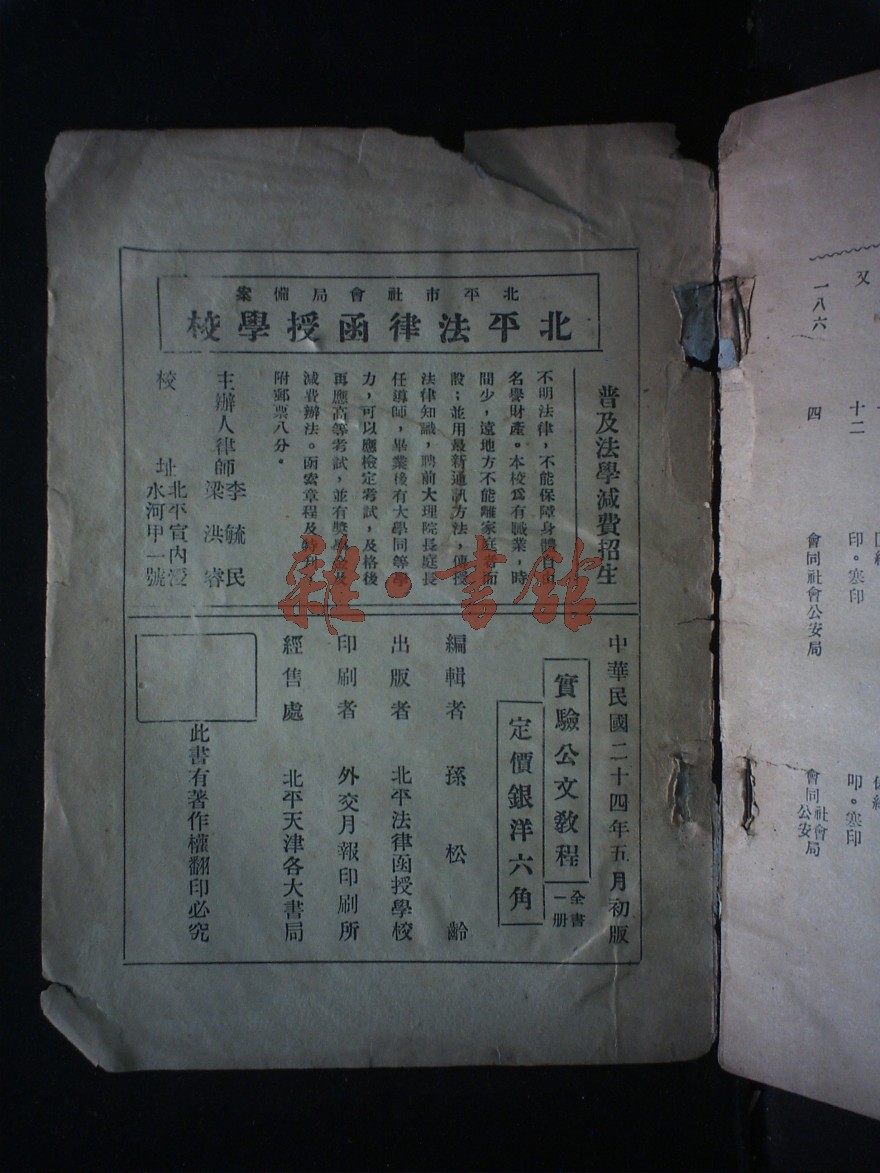 北平市社會局備案
北平法律函授學校
普及法學減費招生
不明法律，不能保障身體自由
名譽財產。本校爲有職業，時
間少，遠地方不能離家庭者而
設；並用最新通訊方法，傳授
法律知識，聘前大理院長庭長
任導師，畢業後有大學同等學
力，可以應檢定考試，及格後
再應高等考試，並有獎學金及
減費辦法。函索章程及特刊
附郵票八分。
主辦人律師李毓民
梁洪睿
校址北平宣內浸
水河甲一號
中華民國二十四年五月初版
實驗公文教程
全書
一册
定價銀洋六角
編輯者 孫松齡
出版者 北平法律函授學校
印刷者 外交月報印刷所
經售處 北平天津各大書局
此書有著作權翻印必究
雜·書館
十二
印。寒印
叩。寒印
又
一八六
四
會同社會公安局
會同社會
公安局